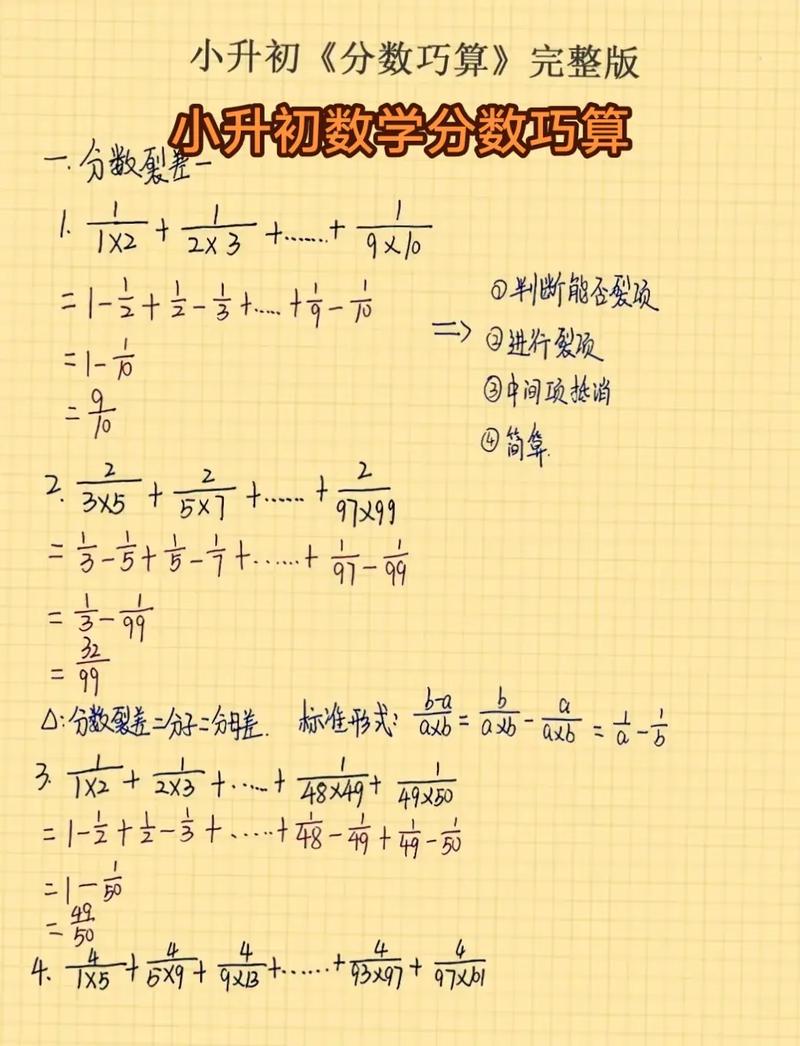 小升初《分数巧算》完整版
小升初数学分数巧算
一.分数裂差一
1. 1/(1×2) + 1/(2×3) +……+ 1/(9×10)
= 1-1/2+1/2-1/3+……+1/9-1/10
= 1-1/10
= 9/10
=>
①判断能否裂项
②进行裂项
③中间项抵消
④简算.
2. 2/(3×5) + 2/(5×7) +……+ 2/(97×99)
= 1/3-1/5+1/5-1/7+……+1/97-1/99
= 1/3-1/99
= 32/99
△:分数裂差=分子=分母差. 标准形式: (b-a)/(a×b) = b/(a×b) - a/(a×b) = 1/a-1/b
3. 1/(1×2) + 1/(2×3) +……+ 1/(48×49) + 1/(49×50)
= 1-1/2+1/2-1/3+……+1/48-1/49+1/49-1/50
= 1-1/50
= 49/50
4. 4/(1×5) + 4/(5×9) + 4/(9×13) +……+ 4/(93×97) + 4/(97×101)